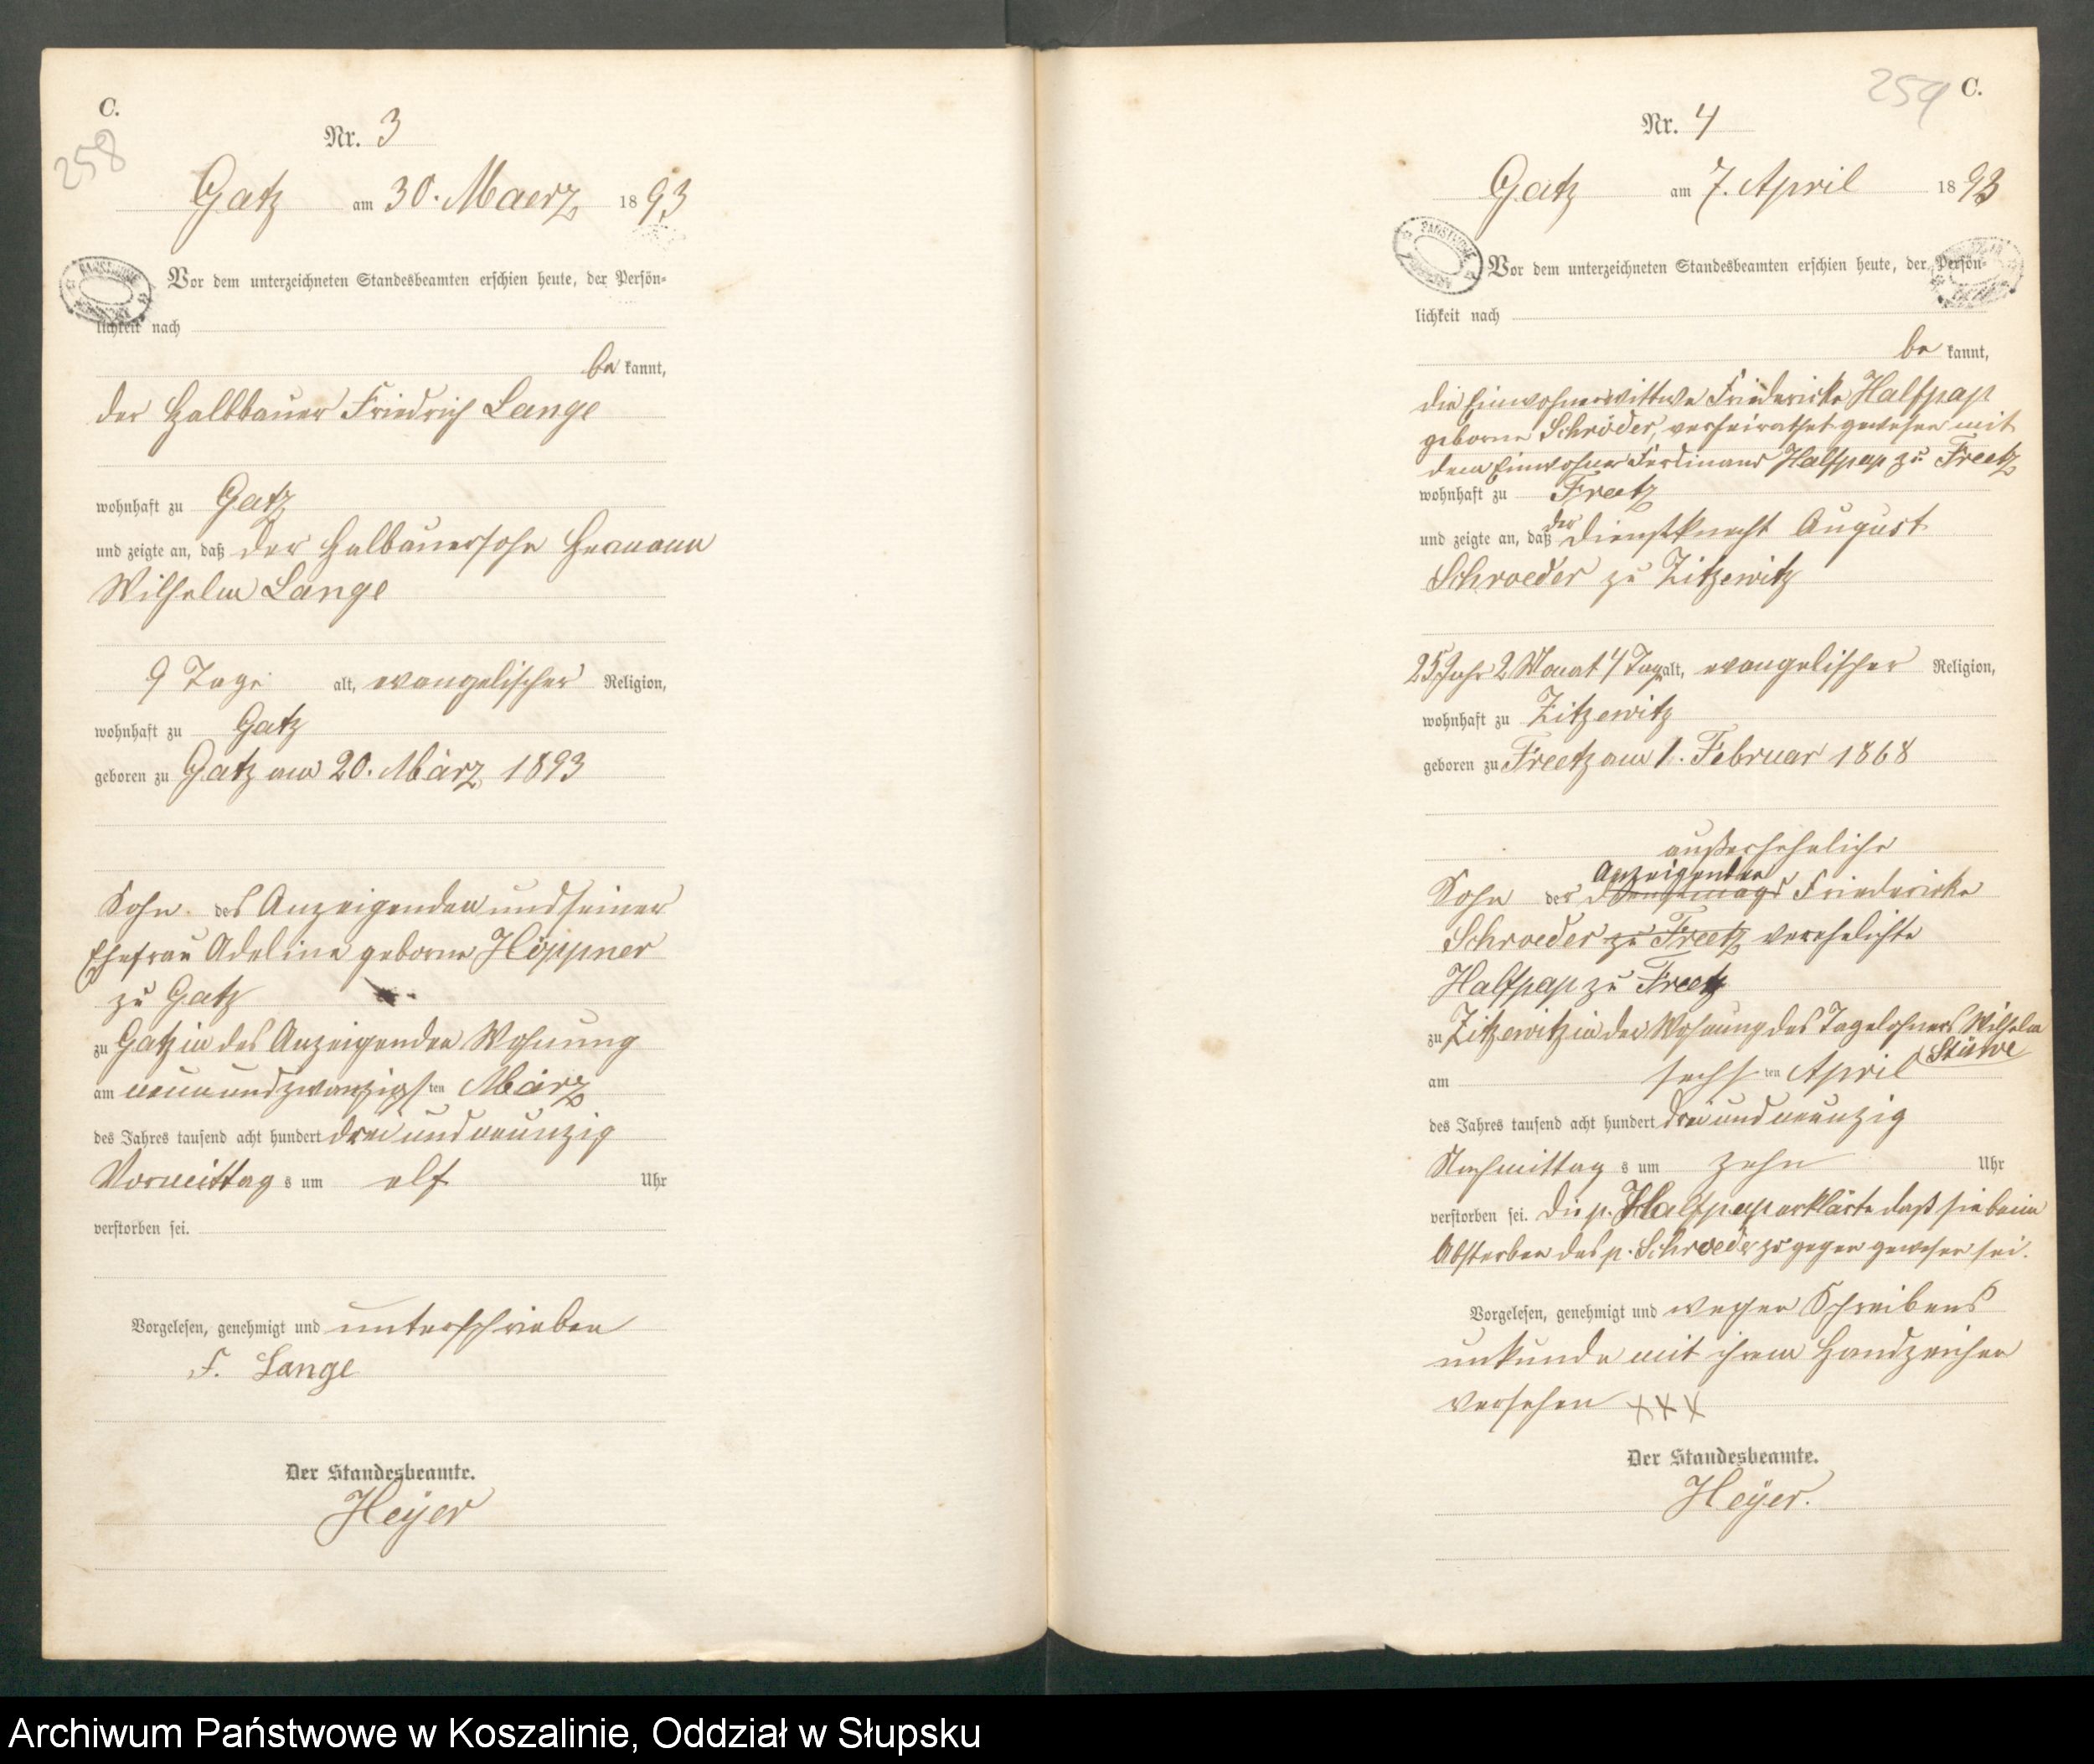 C.
258
Nr. 3
Gatz am 30. Maerz 1893
Vor dem unterzeichneten Standesbeamten erschien heute, der Persön-
lichkeit nach
be kannt,
der Halbbauer Friedrich Lange
wohnhaft zu Gatz
und zeigte an, daß der Halbauersohn Hermann
Wilhelm Lange
9 Tage alt, evangelischer Religion,
wohnhaft zu Gatz
geboren zu Gatz am 20. März 1893
Sohn des Anzeigenden und seiner
Ehefrau Adeline geborne Höppner
zu Gatz
zu Gatz in des Anzeigenden Wohnung
am neunundzwanzigsten März
des Jahres tausend acht hundert drei und neunzig
Vormittags um elf Uhr
verstorben sei.
Vorgelesen, genehmigt und unterschrieben
F. Lange
Der Standesbeamte.
Heyer
259 C.
Nr. 4
Gatz am 7. April 1893
Vor dem unterzeichneten Standesbeamten erschien heute, der Persön-
lichkeit nach
be kannt,
die Einwohnerwittwe Friedericke Halfpap
geborne Schröder, verheirathet gewesen mit
dem Einwohner Ferdinand Halfpap zu Freetz
wohnhaft zu Freetz
und zeigte an, daß der Dienstknecht August
Schroeder zu Zitzewitz
25 Jahr 2 Monat 4 Tage alt, evangelischer Religion,
wohnhaft zu Zitzewitz
geboren zu Freetz am 1. Februar 1868
außereheliche
Anzeigenden
Sohn der Dienstmagd Friedericke
Schroeder zu Freetz verehelichte
Halfpap zu Freetz
zu Zitzewitz in der Wohnung des Tagelohners Wilhelm
Stüwe
am sechsten April
des Jahres tausend acht hundert drei und neunzig
Nachmittags um zehn Uhr
verstorben sei. Die p. Halfpap erklärte daß sie beim
Absterben des p. Schroeder zugegen gewesen sei.
Vorgelesen, genehmigt und wegen Schreibens
unkunde mit ihrem Handzeichen
versehen XXX
Der Standesbeamte.
Heyer.
Archiwum Państwowe w Koszalinie, Oddział w Słupsku